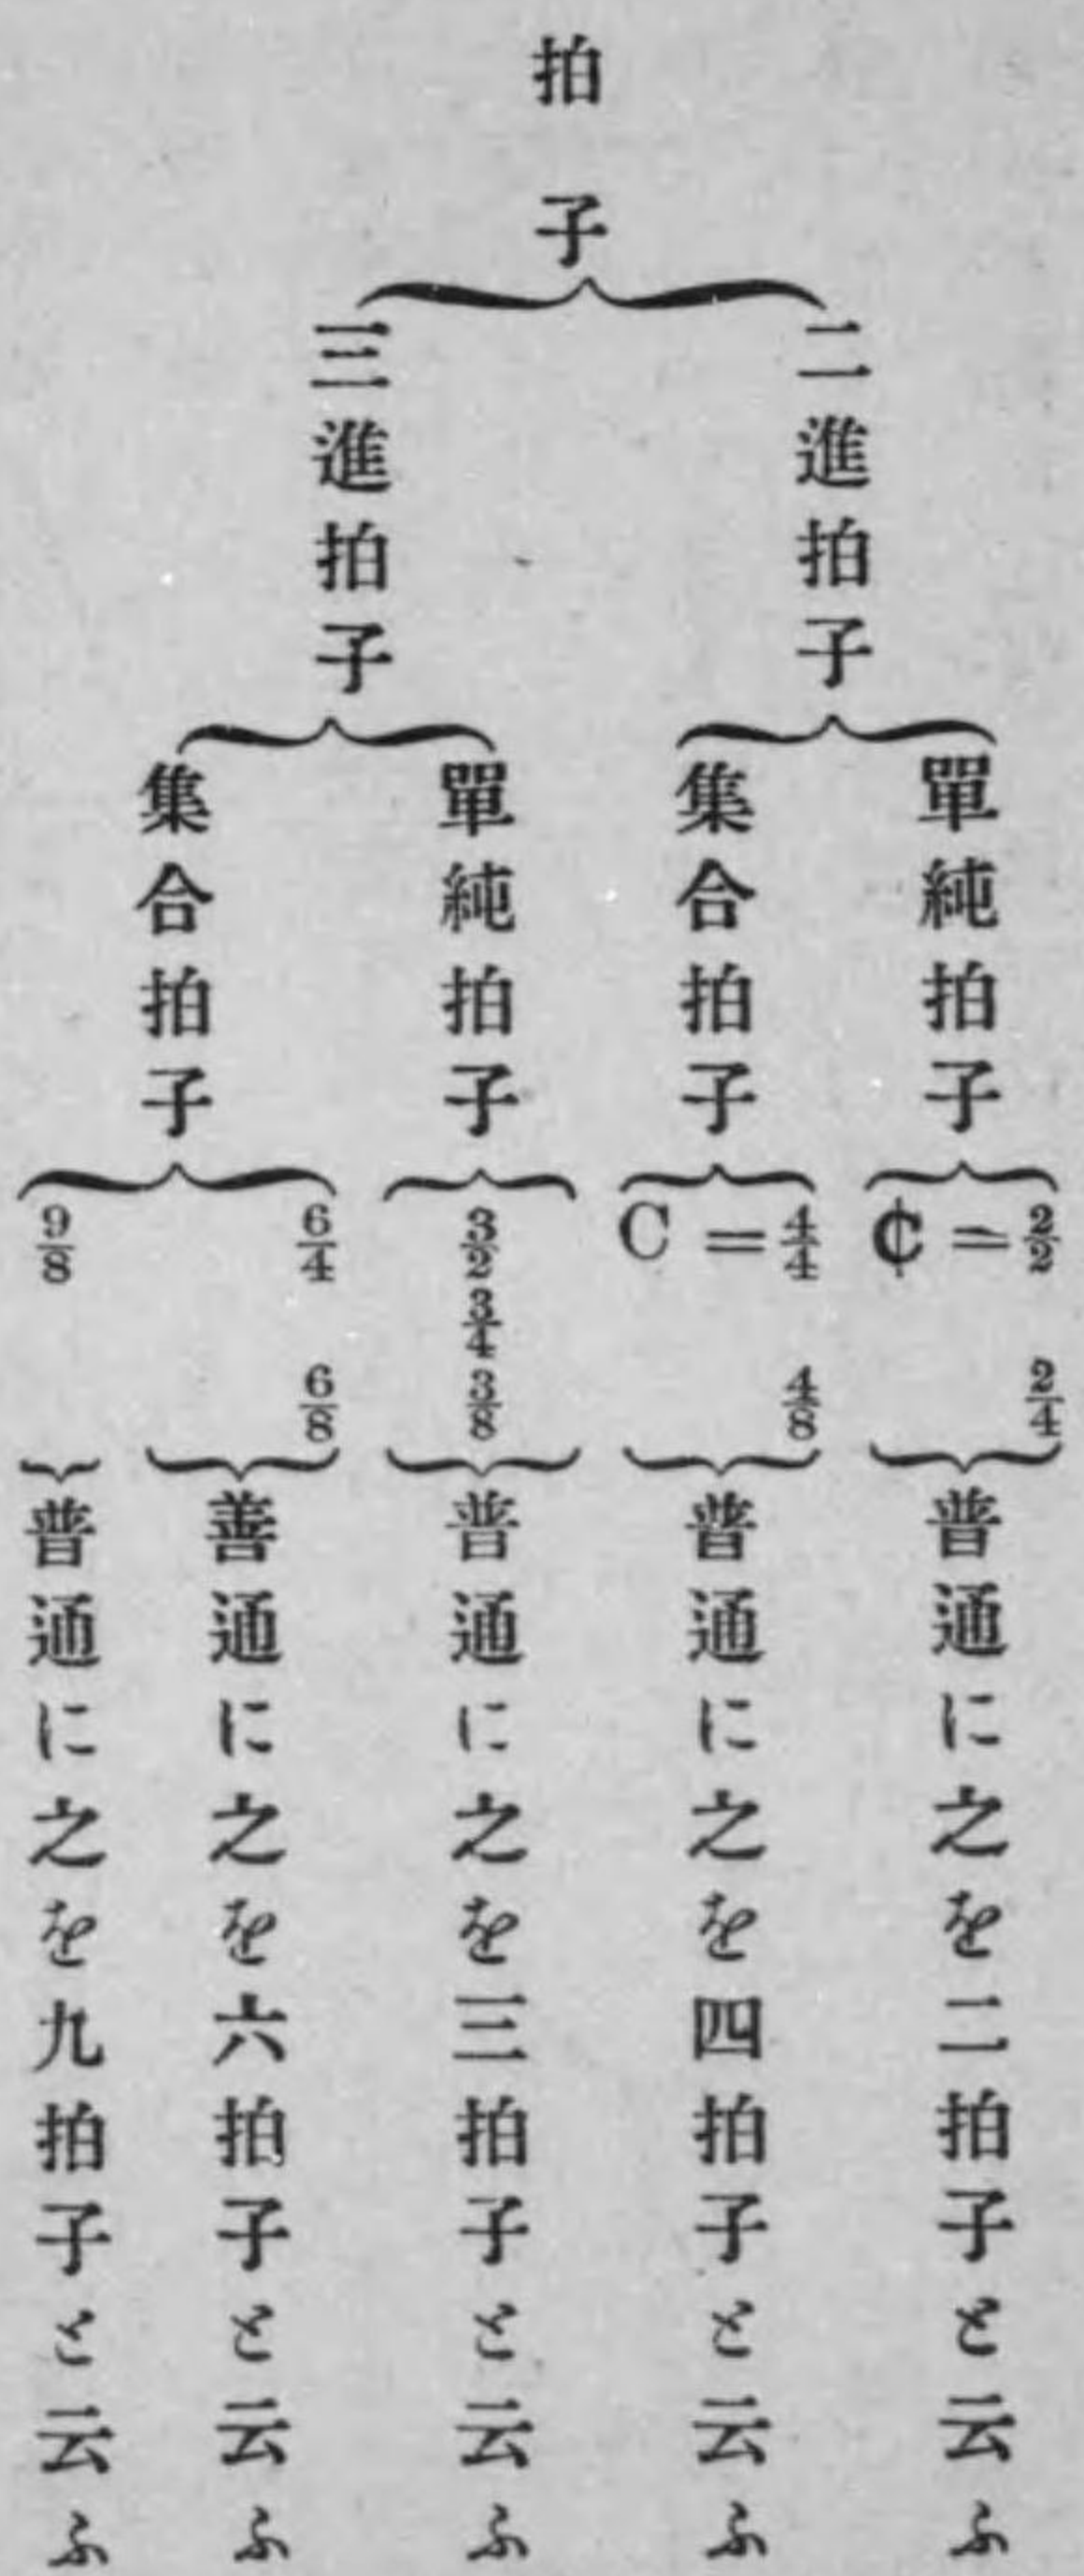 拍子
二進拍子
單純拍子
¢ = 2/2
2/4
普通に之を二拍子と云ふ
集合拍子
C = 4/4
4/8
普通に之を四拍子と云ふ
三進拍子
單純拍子
3/2
3/4
3/8
普通に之を三拍子と云ふ
集合拍子
6/4
6/8
善通に之を六拍子と云ふ
9/8
普通に之を九拍子と云ふ